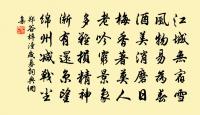 江城無宿雪
風物易為春
酒美消磨日
梅香著莫人
老吟窮景象
多難損精神
漸有還京望
綿州減戰塵
鄭谷梓潼歲暮詞典網
集